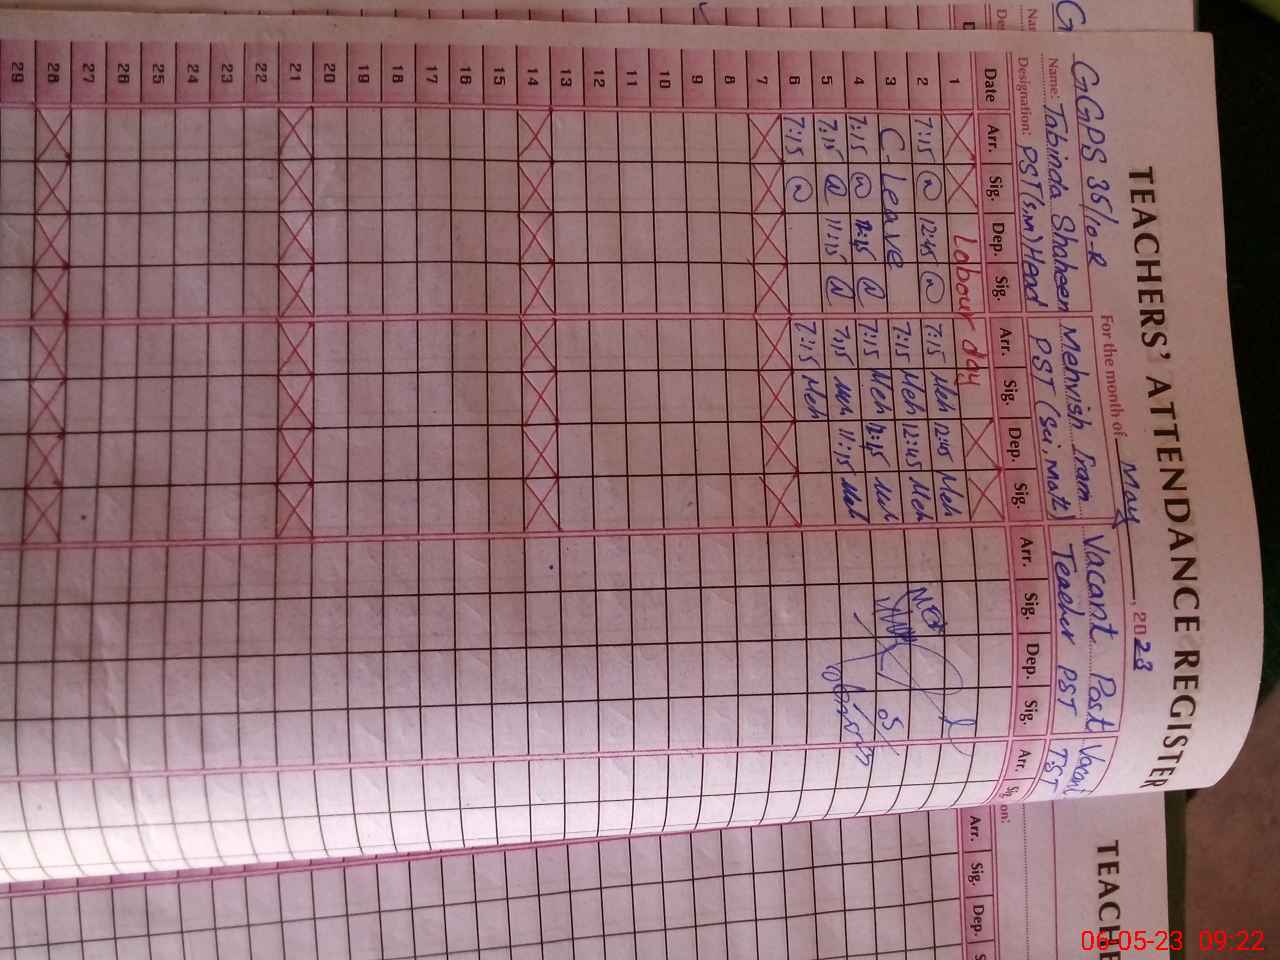 TEACHERS' ATTENDANCE REGISTER
For the month of May, 2023
GGPS 35/10-R
Name: Tabinda Shaheen Mehvish Iram Vacant Post Vacant
Designation: PST(S,M)Head PST (Sci, Math) Teacher PST PST
Date Arr. Sig. Dep. Sig. Arr. Sig. Dep. Sig. Arr. Sig. Dep. Sig. Arr. Sig.
1 Labour day
2 7:15 12:45 7:15 Meh 12:45 Meh
3 C. Leave 7:15 Meh 12:45 Meh
4 7:15 12:45 7:15 Meh 12:45 Meh
5 7:15 11:15 7:15 Meh 11:15 Meh
6 7:15 7:15 Meh
7
8
9
10
11
12
13
14
15
16
17
18
19
20
21
22
23
24
25
26
27
28
29
TEACHE
Arr. Sig. Dep. S
06-05-23 09:22